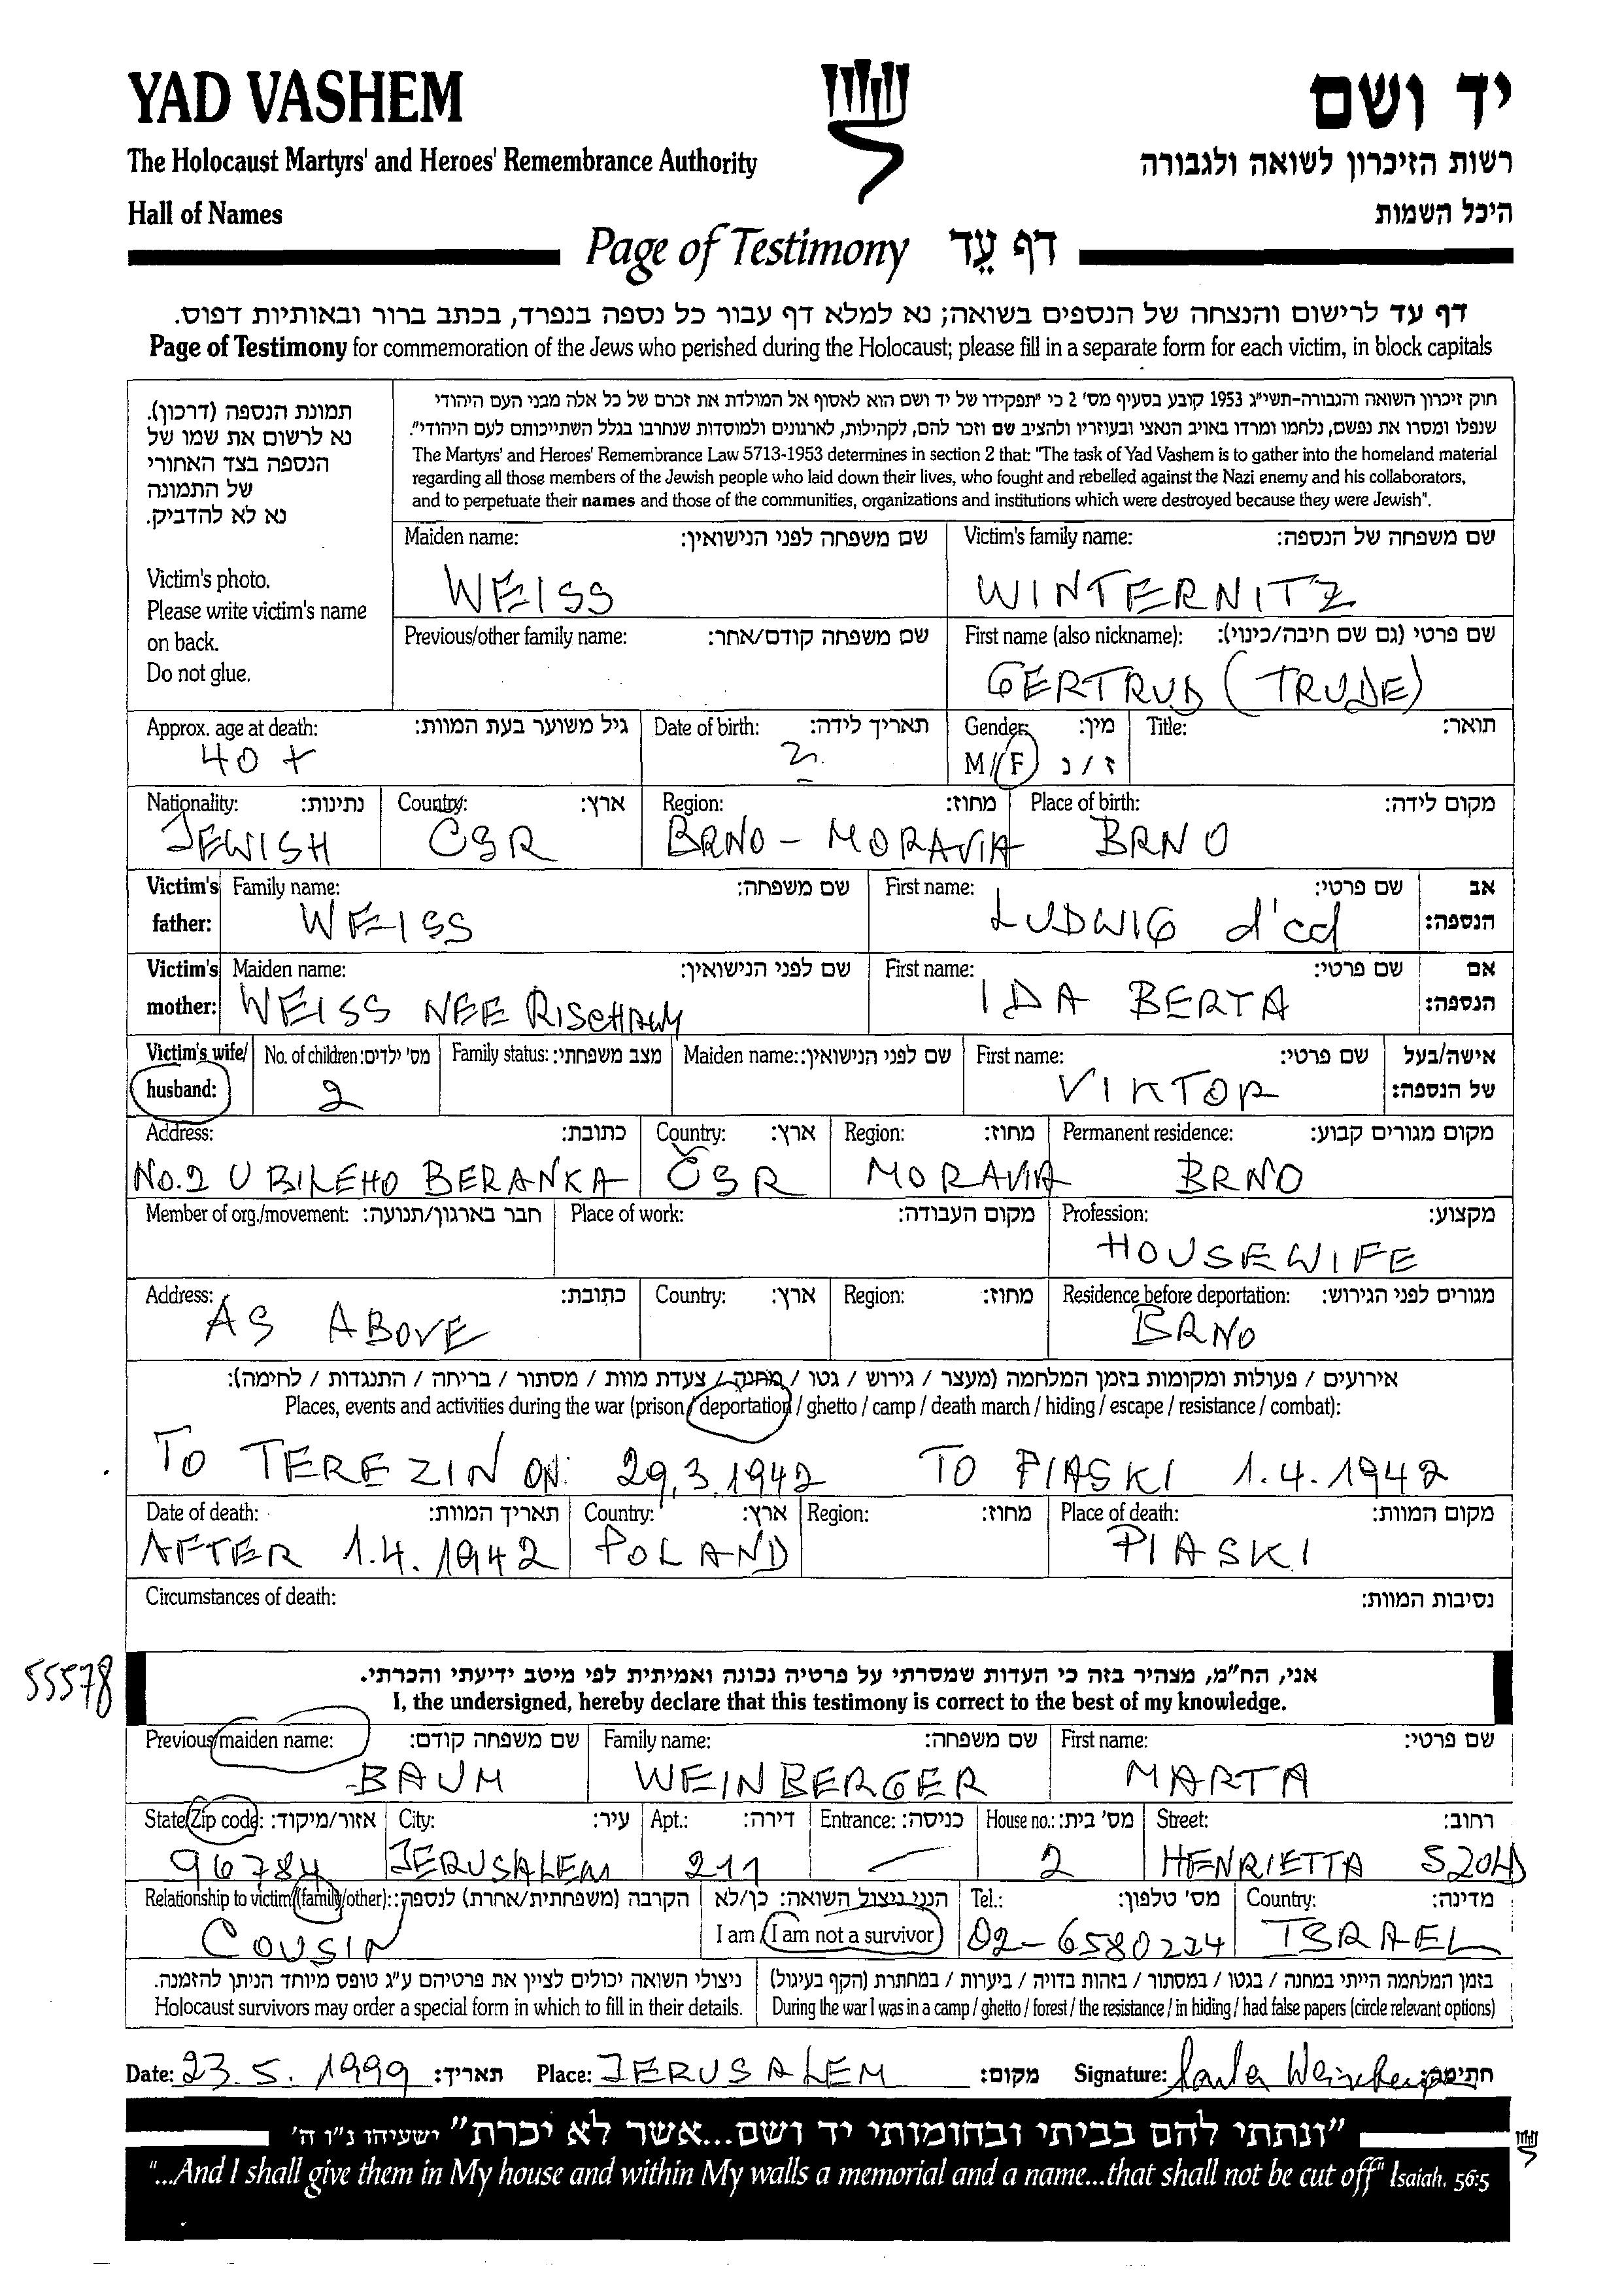 YAD VASHEM
יד ושם
The Holocaust Martyrs' and Heroes' Remembrance Authority
רשות הזיכרון לשואה ולגבורה
Hall of Names
היכל השמות
Page of Testimony דף עֵד
דף עד לרישום והנצחה של הנספים בשואה; נא למלא דף עבור כל נספה בנפרד, בכתב ברור ובאותיות דפוס.
Page of Testimony for commemoration of the Jews who perished during the Holocaust; please fill in a separate form for each victim, in block capitals
תמונת הנספה (דרכון).
נא לרשום את שמו של
הנספה בצד האחורי
של התמונה
נא לא להדביק.
Victim's photo.
Please write victim's name
on back.
Do not glue.
חוק זיכרון השואה והגבורה-תשי"ג 1953 קובע בסעיף מס' 2 כי "תפקידו של יד ושם הוא לאסוף אל המולדת את זכרם של כל אלה מבני העם היהודי
שנפלו ומסרו את נפשם, נלחמו ומרדו באויב הנאצי ובעוזריו ולהציב שם וזכר להם, לקהילות, לארגונים ולמוסדות שנחרבו בגלל השתייכותם לעם היהודי".
The Martyrs' and Heroes' Remembrance Law 5713-1953 determines in section 2 that: "The task of Yad Vashem is to gather into the homeland material
regarding all those members of the Jewish people who laid down their lives, who fought and rebelled against the Nazi enemy and his collaborators,
and to perpetuate their names and those of the communities, organizations and institutions which were destroyed because they were Jewish".
Maiden name: שם משפחה לפני הנישואין: Victim's family name: שם משפחה של הנספה:
WEISS WINTERNITZ
Previous/other family name: שם משפחה קודם/אחר: First name (also nickname): שם פרטי (גם שם חיבה/כינוי):
GERTRUD (TRUDE)
Approx. age at death: גיל משוער בעת המוות: Date of birth: תאריך לידה: Gender: מין: Title: תואר:
40 + ? M/F ז/נ
Nationality: נתינות: Country: ארץ: Region: מחוז: Place of birth: מקום לידה:
JEWISH CSR BRNO - MORAVIA BRNO
Victim's father: Family name: שם משפחה: First name: שם פרטי: אב הנספה:
WEISS LUDWIG d'cd
Victim's mother: Maiden name: שם לפני הנישואין: First name: שם פרטי: אם הנספה:
WEISS NEE IDA BERTA
Victim's wife/ husband: No. of children: מס' ילדים: Family status: מצב משפחתי: Maiden name: שם לפני הנישואין: First name: שם פרטי: אישה/בעל של הנספה:
2 VIKTOR
Address: כתובת: Country: ארץ: Region: מחוז: Permanent residence: מקום מגורים קבוע:
No.2 U BILEHO BERANKA ČSR MORAVIA BRNO
Member of org./movement: חבר בארגון/תנועה: Place of work: מקום העבודה: Profession: מקצוע:
HOUSEWIFE
Address: כתובת: Country: ארץ: Region: מחוז: Residence before deportation: מגורים לפני הגירוש:
AS ABOVE BRNO
אירועים / פעולות ומקומות בזמן המלחמה (מעצר / גירוש / גטו / מחנה / צעדת מוות / מסתור / בריחה / התנגדות / לחימה):
Places, events and activities during the war (prison / deportation / ghetto / camp / death march / hiding / escape / resistance / combat):
TO TEREZIN ON: 29.3.1942 TO PIASKI 1.4.1942
Date of death: תאריך המוות: Country: ארץ: Region: מחוז: Place of death: מקום המוות:
AFTER 1.4.1942 POLAND PIASKI
Circumstances of death: נסיבות המוות:
55578
אני, הח"מ, מצהיר בזה כי העדות שמסרתי על פרטיה נכונה ואמיתית לפי מיטב ידיעתי והכרתי.
I, the undersigned, hereby declare that this testimony is correct to the best of my knowledge.
Previous/maiden name: שם משפחה קודם: Family name: שם משפחה: First name: שם פרטי:
BAUM WEINBERGER MARTA
State/Zip code: אזור/מיקוד: City: עיר: Apt.: דירה: Entrance: כניסה: House no.: מס' בית: Street: רחוב:
96784 JERUSALEM 211 — 2 HENRIETTA SZOLD
Relationship to victim (family/other): הקרבה (משפחתית/אחרת) לנספה: הנני ניצול השואה: כן/לא Tel.: מס' טלפון: Country: מדינה:
COUSIN I am / I am not a survivor 02-6580224 ISRAEL
ניצולי השואה יכולים לציין את פרטיהם ע"ג טופס מיוחד הניתן להזמנה. בזמן המלחמה הייתי במחנה / בגטו / במסתור / בזהות בדויה / ביערות / במחתרת (הקף בעיגול)
Holocaust survivors may order a special form in which to fill in their details. During the war I was in a camp / ghetto / forest / the resistance / in hiding / had false papers (circle relevant options)
Date: 23.5.1999 תאריך: Place: JERUSALEM מקום: Signature: Marta Weinberger חתימה:
"ונתתי להם בביתי ובחומותי יד ושם...אשר לא יכרת" ישעיהו נ"ו ה'
"...And I shall give them in My house and within My walls a memorial and a name...that shall not be cut off" Isaiah. 56:5